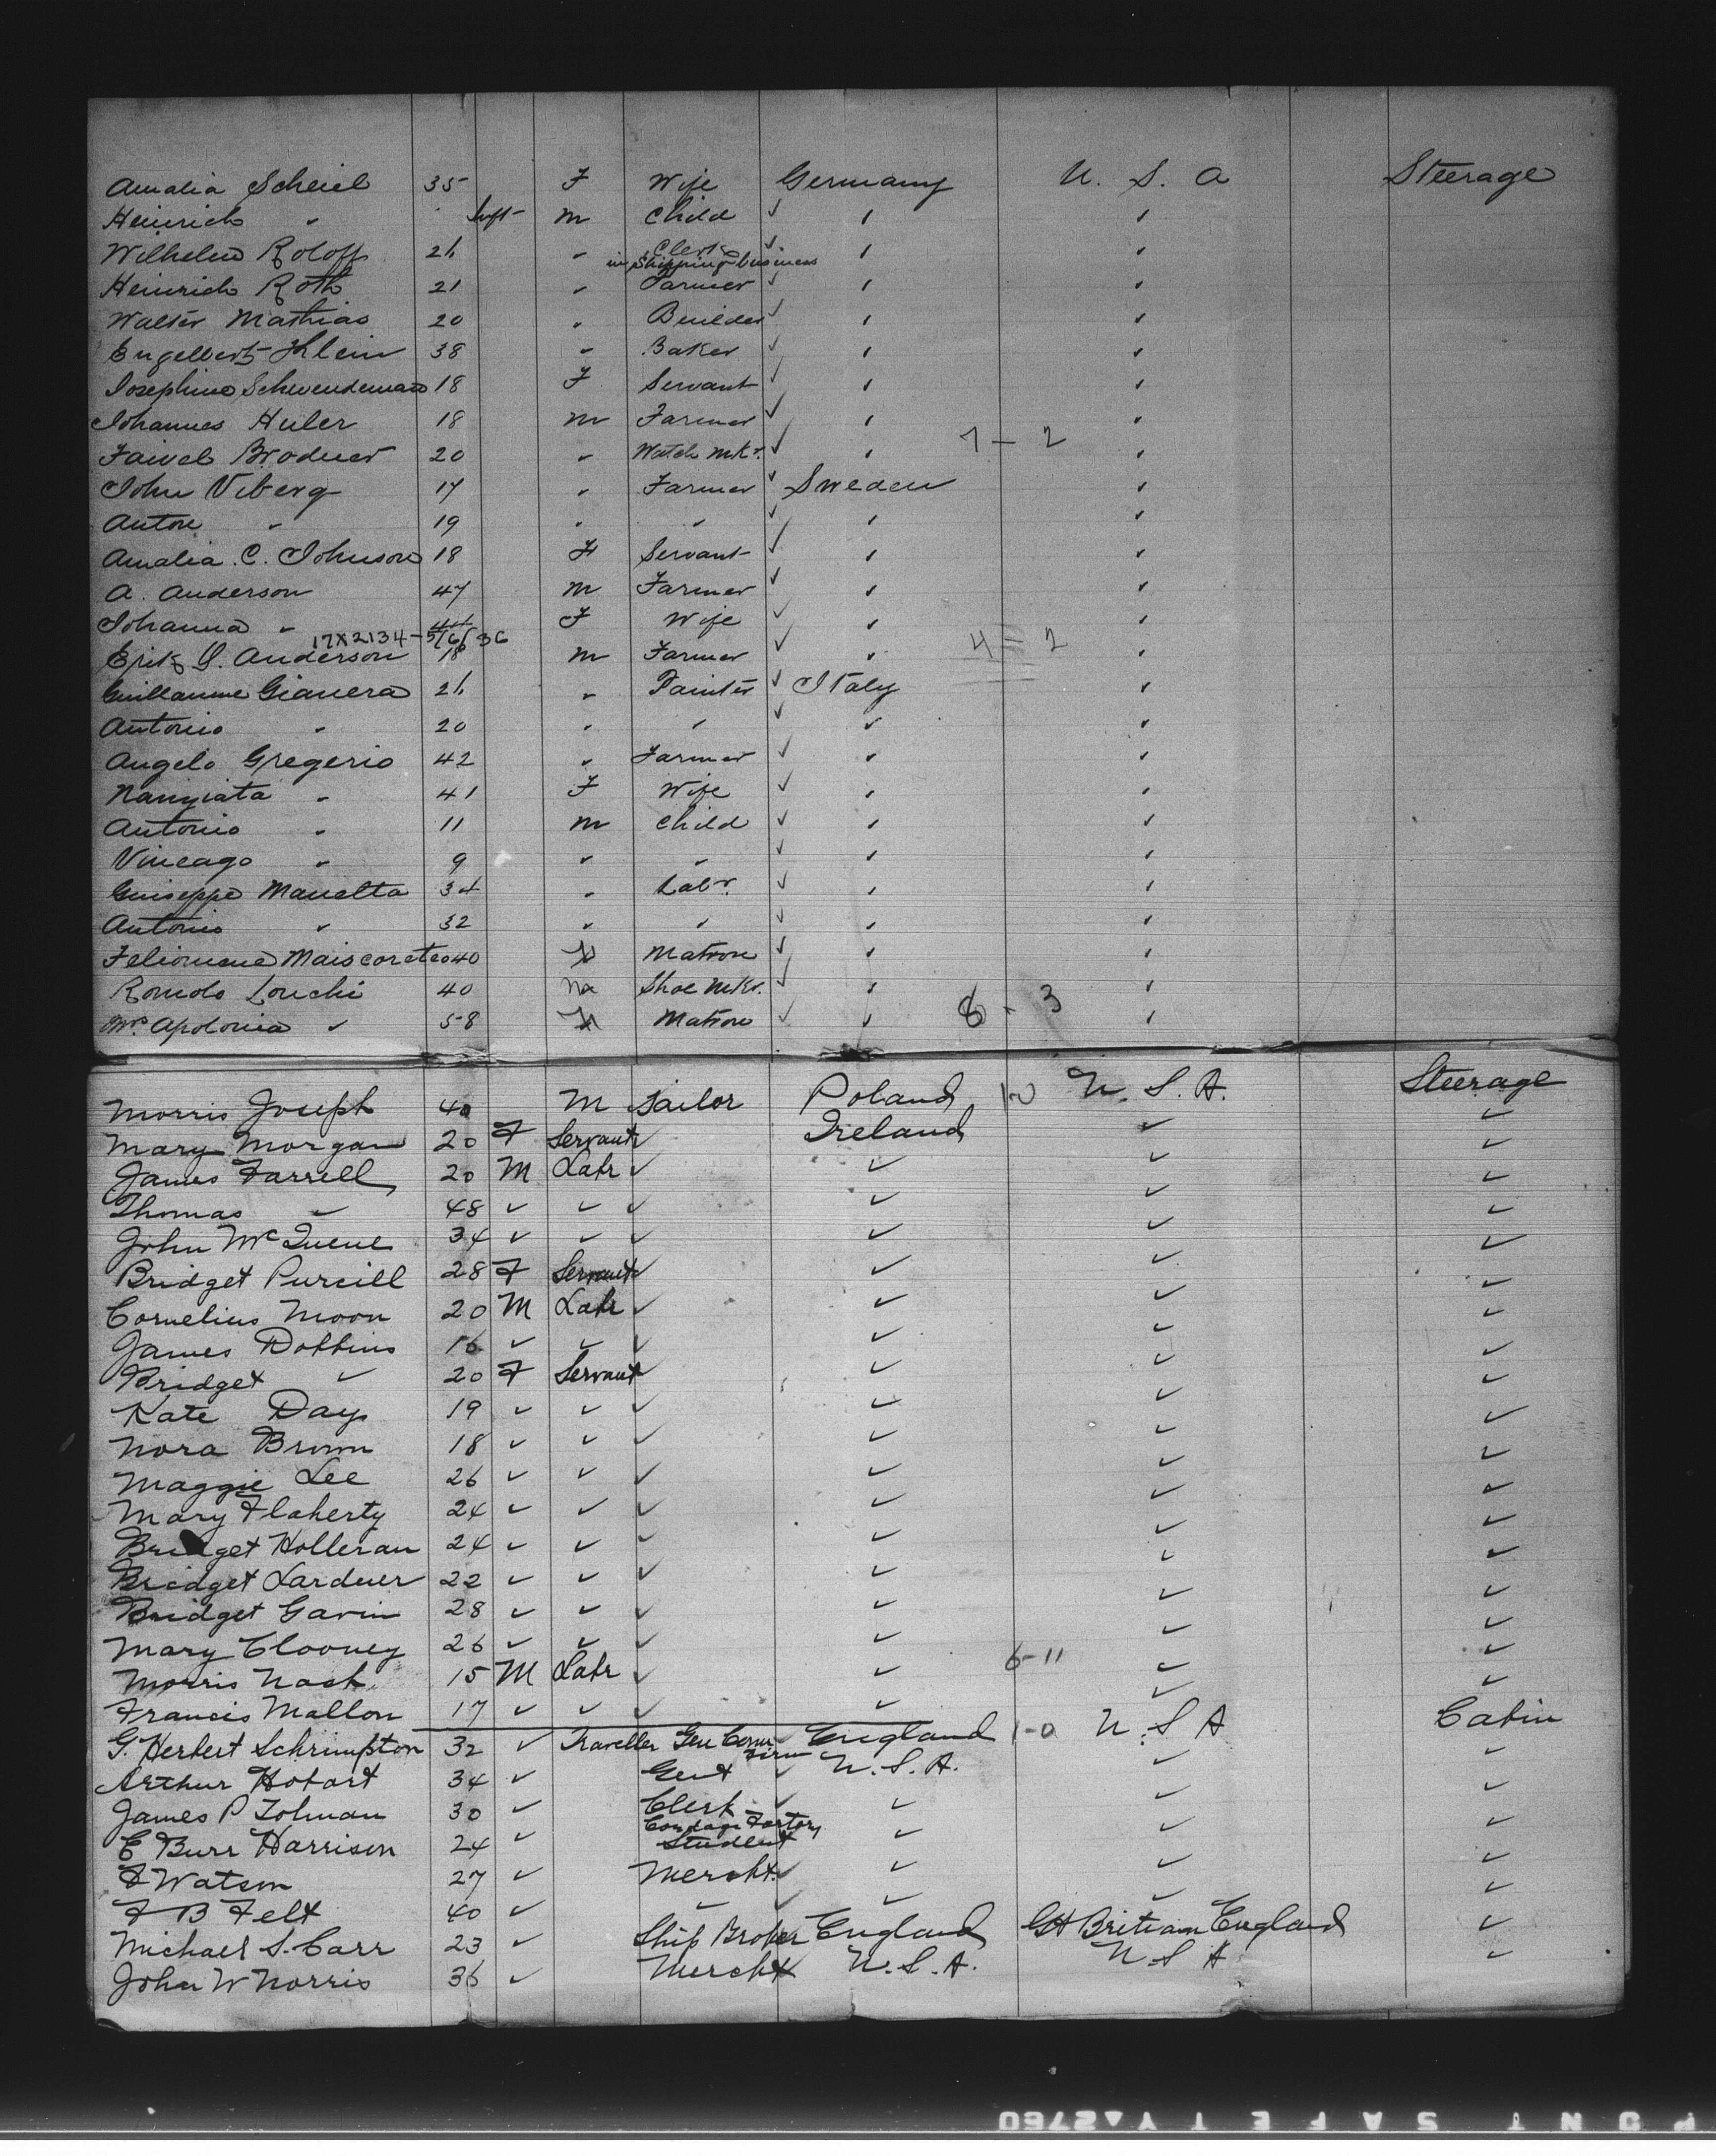 Amalia Scheid 35 F Wife Germany U. S. A Steerage
Heinrich " Inft M Child ✓ " "
Wilhelm Roloff 26 " Clerk ✓ " "
in shipping business
Heinrich Roth 21 " Farmer ✓ " "
Walter Mathias 20 " Builder ✓ " "
Engelbert Klein 38 " Baker ✓ " "
Josephine Schwendeman 18 F Servant ✓ " "
Johannes Huler 18 M Farmer ✓ " "
Faivel Brodner 20 " Watch Mkr. ✓ " 7 - 2 "
John Viberg 17 " Farmer ✓ Sweden "
Anton " 19 " " ✓ " "
Amalia. C. Johnson 18 F Servant ✓ " "
A. Anderson 47 M Farmer ✓ " "
Johanna " 44 F Wife ✓ " "
17X2134-5/6/36
Erik G. Anderson 18 M Farmer ✓ " 4 = 2 "
Guillaume Gianera 26 " Painter ✓ Italy "
Antonio " 20 " " ✓ " "
Angelo Gregerio 42 " Farmer ✓ " "
Nanziata " 41 F Wife ✓ " "
Antonio " 11 M Child ✓ " "
Vincago " 9 " " ✓ " "
Guiseppe Manelta 34 " Labr. ✓ " "
Antonio " 32 " " ✓ " "
Feliomene Maiscoreteo 40 F Matron ✓ " "
Romolo Lonchi 40 M Shoe Mkr. ✓ " "
Mrs Apolonia " 58 F Matron ✓ " 8 - 3 "
Morris Joseph 40 M Tailor Poland U. S. A. Steerage
Mary Morgan 20 F Servant ✓ Ireland ✓ ✓
James Farrell 20 M Labr ✓ ✓ ✓ ✓
Thomas ✓ 48 ✓ ✓ ✓ ✓ ✓ ✓
John McQueue 34 ✓ ✓ ✓ ✓ ✓ ✓
Bridget Purcill 28 F Servant ✓ ✓ ✓ ✓
Cornelius Moon 20 M Labr ✓ ✓ ✓ ✓
James Dobbins 16 ✓ ✓ ✓ ✓ ✓ ✓
Bridget ✓ 20 F Servant ✓ ✓ ✓ ✓
Kate Days 19 ✓ ✓ ✓ ✓ ✓ ✓
Nora Brown 18 ✓ ✓ ✓ ✓ ✓ ✓
Maggie Lee 26 ✓ ✓ ✓ ✓ ✓ ✓
Mary Flaherty 24 ✓ ✓ ✓ ✓ ✓ ✓
Bridget Holleran 24 ✓ ✓ ✓ ✓ ✓ ✓
Bridget Lardner 22 ✓ ✓ ✓ ✓ ✓ ✓
Bridget Gavin 28 ✓ ✓ ✓ ✓ ✓ ✓
Mary Clooney 26 ✓ ✓ ✓ ✓ ✓ ✓
Morris Nash 15 M Labr ✓ ✓ 6-11 ✓ ✓
Francis Mallon 17 ✓ ✓ ✓ ✓ ✓ ✓
G. Herbert Schrimpton 32 ✓ Traveller Gen Com England 1-0 U. S. A Cabin
Firm
Arthur Hobart 34 ✓ Gent ✓ U. S. A. ✓ ✓
James P Tolman 30 ✓ Clerk ✓ ✓ ✓ ✓
Cordage Factory
E Burr Harrison 24 ✓ Student ✓ ✓ ✓
F Watson 27 ✓ Mercht. ✓ ✓ ✓ ✓
F B Felt 40 ✓ ✓ ✓ ✓ ✓ ✓
Michael S. Carr 23 ✓ Ship Broker England Gt Britian England ✓
John W Norris 36 ✓ Mercht U. S. A. U S A ✓
PONT SAFETY▲2760